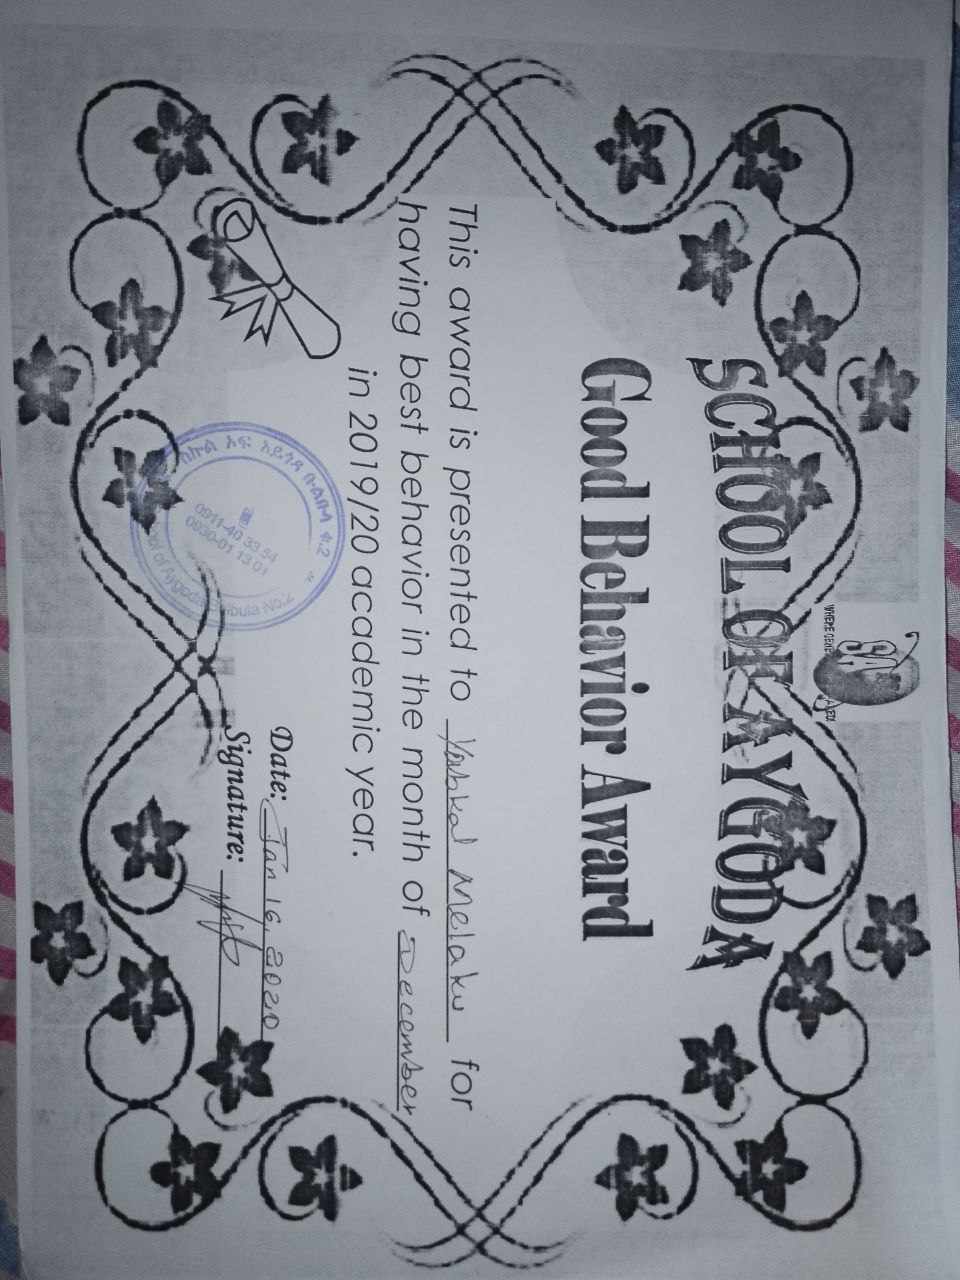 SCHOOL OF AYGODA
Good Behavior Award
This award is presented to Yabkal Melaku for
having best behavior in the month of December
in 2019/20 academic year.
Date: Jan 16, 2020
Signature:
ስኩል ኦፍ አይጎዳ ቡልቡላ ቁ.2
0911-40 33 54
0930-01 13 01
School of Aygoda Bulbula No.2